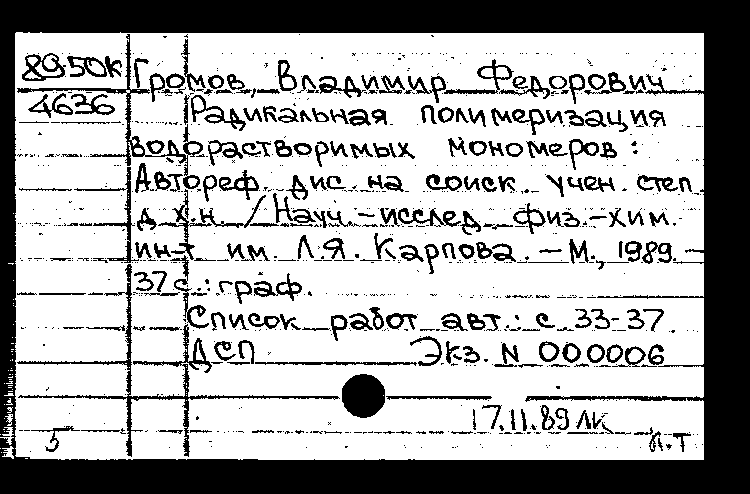 89-50К Громов, Владимир Федорович
4636 Радикальная полимеризация
водорастворимых мономеров:
Автореф. дис. на соиск. учен. степ.
д.х.н. / Науч.-исслед. физ.-хим.
ин-т им. Л.Я. Карпова. - М., 1989. -
37 с.: граф.
Список работ авт.: с. 33-37.
ДСП Экз. N 000006
17.11.89 ЛК
5 п.т